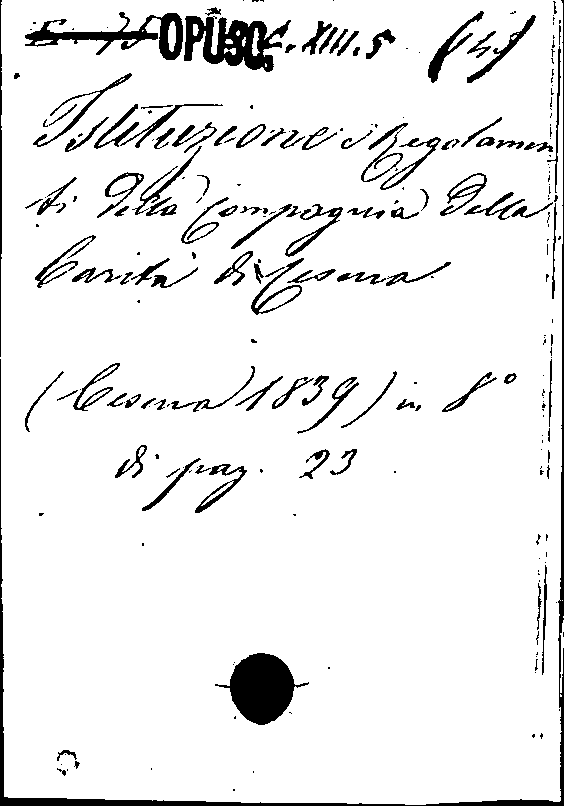 OPUSC. C. XIII. 5 (14)
Istituzione e Regolamen
ti della Compagnia della
Carità di Cesena
(Cesena 1839) in 8º
di pag. 23